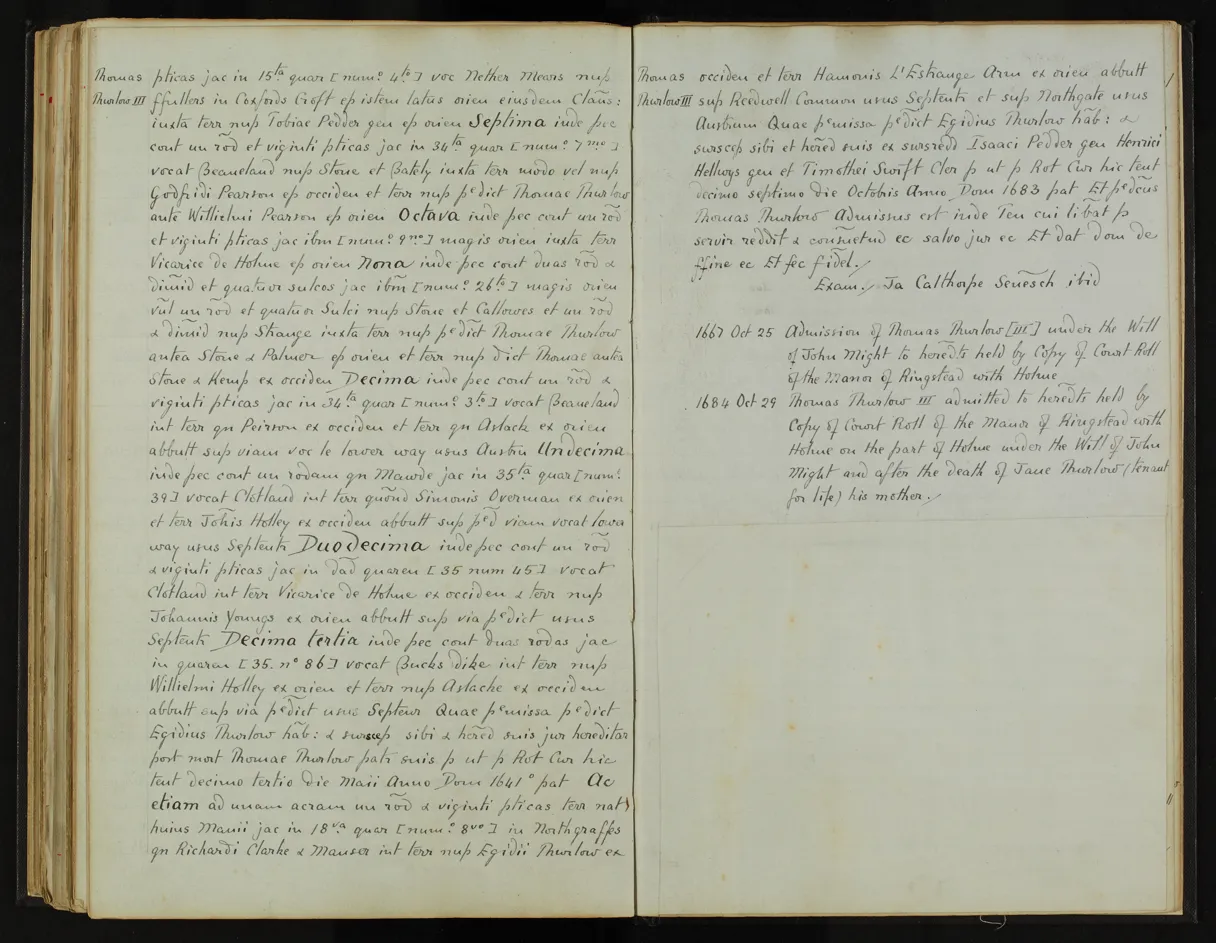 Thomas
Thurlow III
pticas jac in 15ta quar [num.o 4to] voc Nether Mears nup
ffullers in Coxfords Croft ep istem latus orien eiusdem Claus:
iuxta terr nup Tobiae Pedder gen ep orien Septima inde pec
cont un rod et viginti pticas jac in 34ta quar [num.o 7mo]
vocat Beaneland nup Stone et Bately iuxta terr modo vel nup
Godfridi Pearson ep occiden et terr nup pedict Thomae Thurlow
ante Willielmi Pearson ep orien Octava inde pec cont un rod
et viginti pticas jac ibm [num.o 9no] magis orien iuxta terr
Vicarice de Holme ep orien Nona inde pec cont duas rod &
dimid et quatuor sulcos jac ibm [num.o 26to] magis orien
vul un rod et quatuor Sulci nup Stone et Callowes et un rod
& dimid nup Strange iuxta terr nup pedict Thomae Thurlow
antea Stone & Palmer ep orien et terr nup dict Thomae antea
Stone & Kemp ex occiden Decima inde pec cont un rod &
viginti pticas jac in 34ta quar [num.o 3to] vocat Beaneland
int terr qn Peirson ex occiden et terr qn Aslack ex orien
abbutt sup viam voc le lower way usus Austru Undecima
inde pec cont un rodam qn Mawde jac in 35ta quar [num.o
39] vocat Clotland int terr quond Simonis Overman ex orien
et terr Johis Holley ex occiden abbutt sup ped viam vocat lowa
way usus Septentr Duodecima inde pec cont un rod
& viginti pticas jac in dad quaren [35 num 45] vocat
Clotland int terr Vicarice de Holme ex occiden & terr nup
Johannis Youngs ex orien abbutt sup via pedict usus
Septentr Decima tertia inde pec cont duas rodas jac
in quaren [35. no 86] vocat Bucks Dike int terr nup
Willielmi Holley ex orien et terr nup Aslacke ex occiden
abbutt sup via pedict usus Septen Quae pemissa pedict
Egidius Thurlow hab: & suscep sibi & hered suis jur hereditar
port mort Thomae Thurlow patr suis p ut p Rot Cur hic
tent decimo tertio die Maii Anno Dom 1641o pat Ac
etiam ad unam acram un rod & viginti pticas terr nat
huius Manii jac in 18va quar [num.o 8vo] in Northgraffes
qn Richardi Clarke & Manser int terr nup Egidii Thurlow ex
Thomas
Thurlow III
occiden et terr Hamonis L'Estrange Arm ex orien abbutt
sup Reedwell Common usus Septentr et sup Northgate usus
Austrum Quae pemissa pedict Egidius Thurlow hab: &
surscep sibi et hered suis ex sursredd Isaaci Pedder gen Henrici
Hellwys gen et Timothei Swift Cler p ut p Rot Cur hic tent
decimo septimo die Octobris Anno Dom 1683 pat Et pedcus
Thomas Thurlow Admissus est inde Ten cui libat p
servir reddit & consuetud ec salvo jur ec Et dat dom de
ffine ec Et fec fidel.
Exam. Ja Calthorpe Senesch ibid
1667 Oct 25 Admission of Thomas Thurlow [III] under the Will
of John Might to heredts held by Copy of Court Roll
of the Manor of Ringstead with Holme
1684 Oct 29 Thomas Thurlow III admitted to heredts held by
Copy of Court Roll of the Manor of Ringstead with
Holme on the part of Holme under the Will of John
Might and after the death of Jane Thurlow (tenant
for life) his mother.